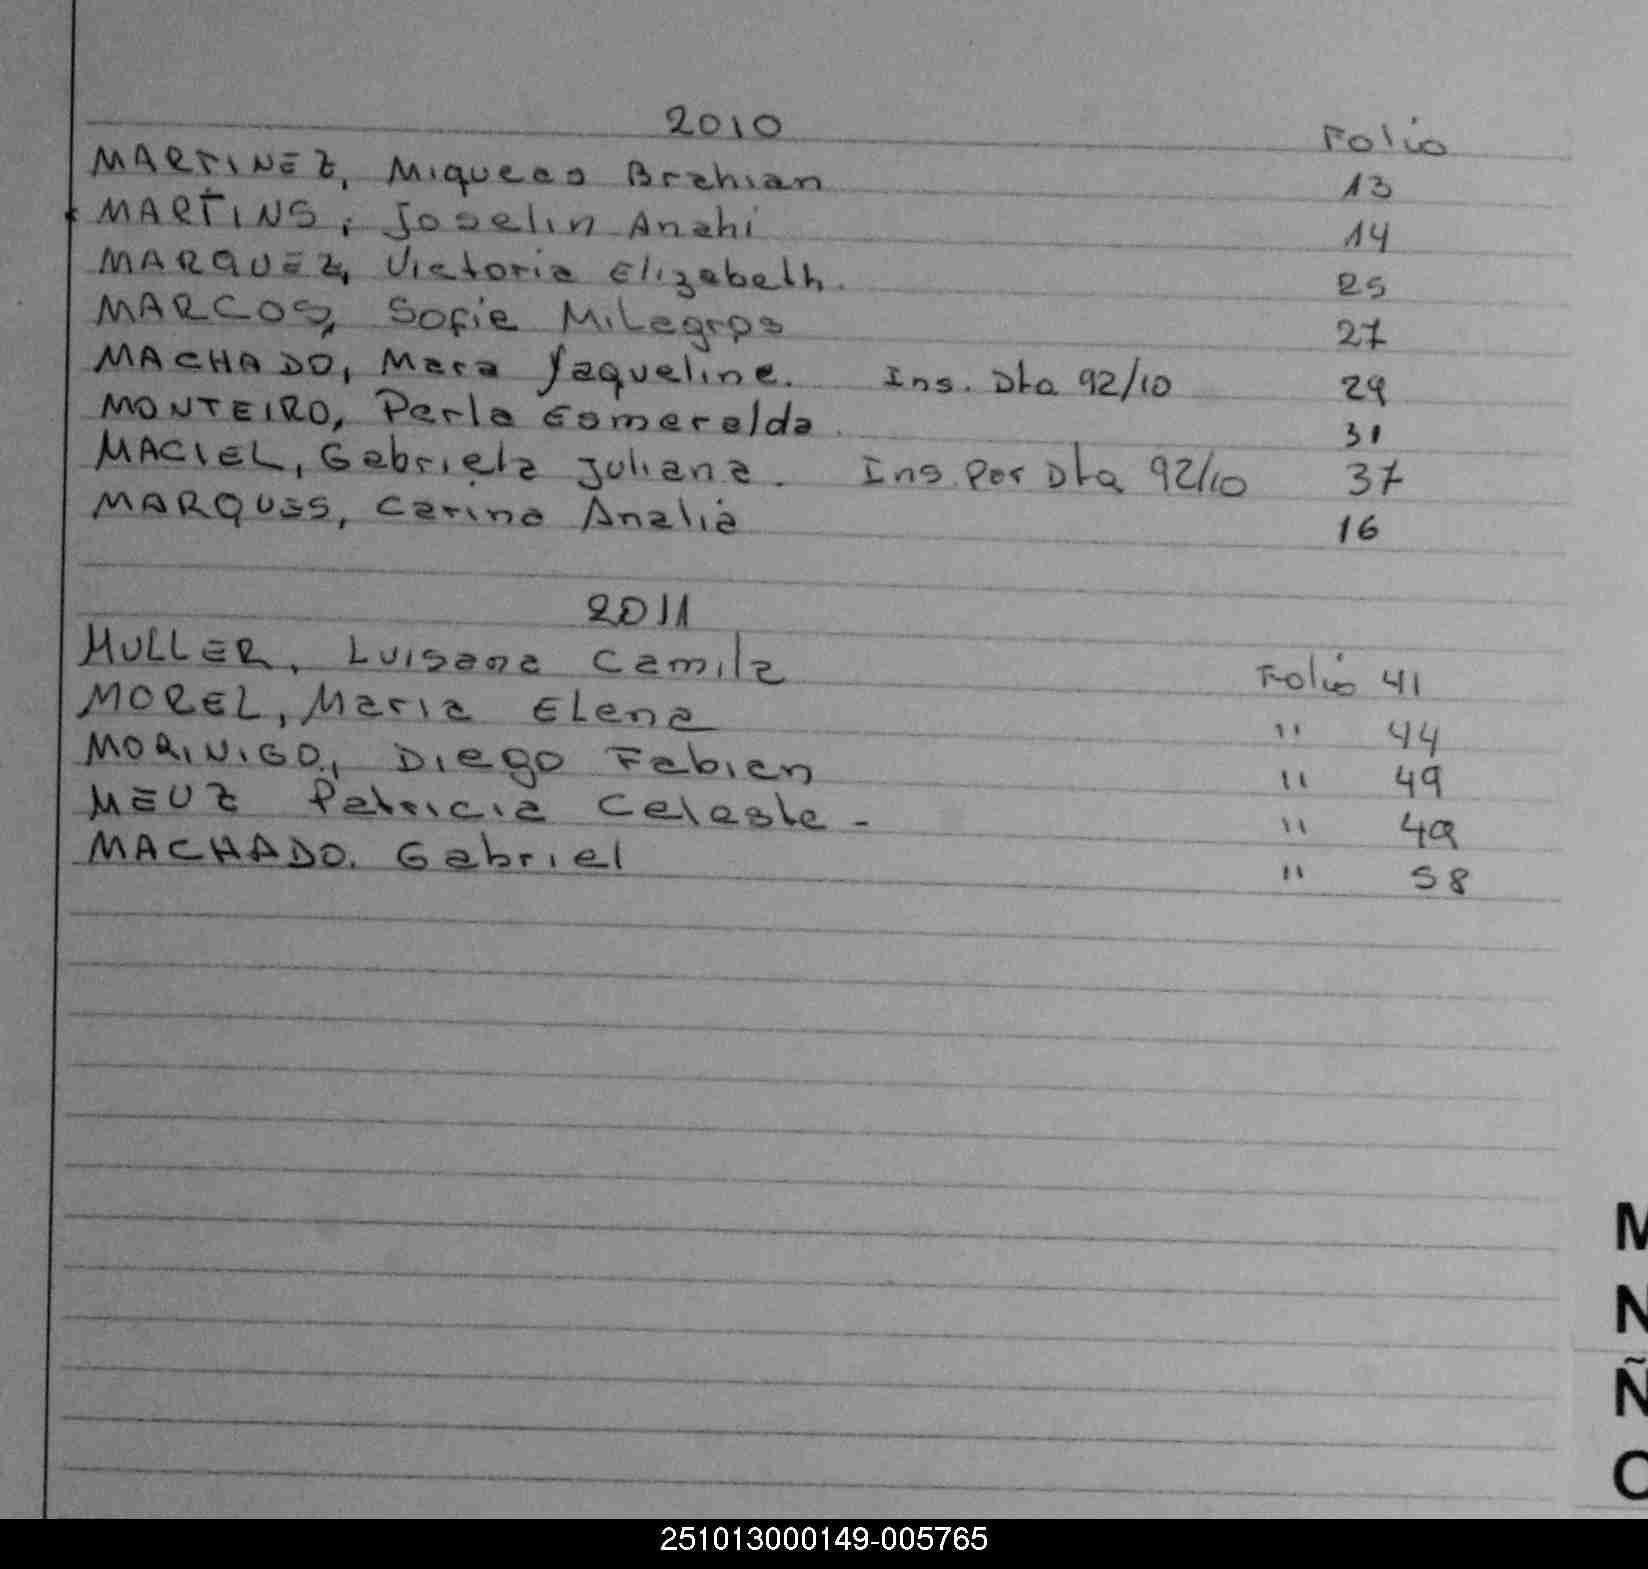 2010 Folio
MARTINEZ, Miqueas Brahian 13
MARTINS, Joselin Anahi 14
MARQUEZ, Victoria Elizabeth. 25
MARCOS, Sofia Milagros 27
MACHADO, Mara Jaqueline. Ins. Dta 92/10 29
MONTEIRO, Perla Esmeralda. 31
MACIEL, Gabriela Juliana. Ins Por Dta 92/10 37
MARQUES, Carina Analia 16
2011
MULLER, Luisana Camila Folio 41
MOREL, Maria Elena " 44
MORINIGO, Diego Fabian " 49
MEUZ Patricia Celeste - " 49
MACHADO. Gabriel " 58
M
N
Ñ
O
251013000149-005765